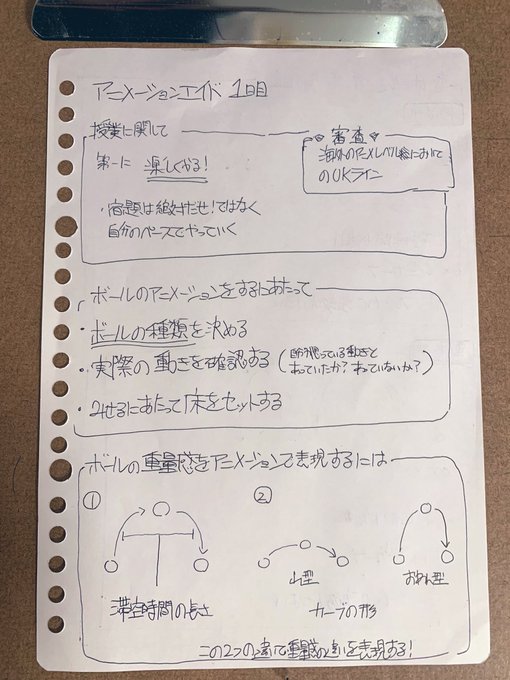 アニメーションエイド 1日目
授業に関して
第一に 楽しくやる!
・宿題は絶対だせ!ではなく
自分のペースでやっていく
審査
海外のアニメレベル絵において
のOKライン
ボールのアニメーションをするにあたって
・ボールの種類を決める
・実際の動きを確認する (自分が思っている動きと
あっていたか?あっていないか?)
・みせるにあたって床をセットする
ボールの重量感をアニメーションで表現するには
① ②
山型 おわん型
滞空時間の長さ カーブの形
この2つの違いで重量感の違いを表現する!